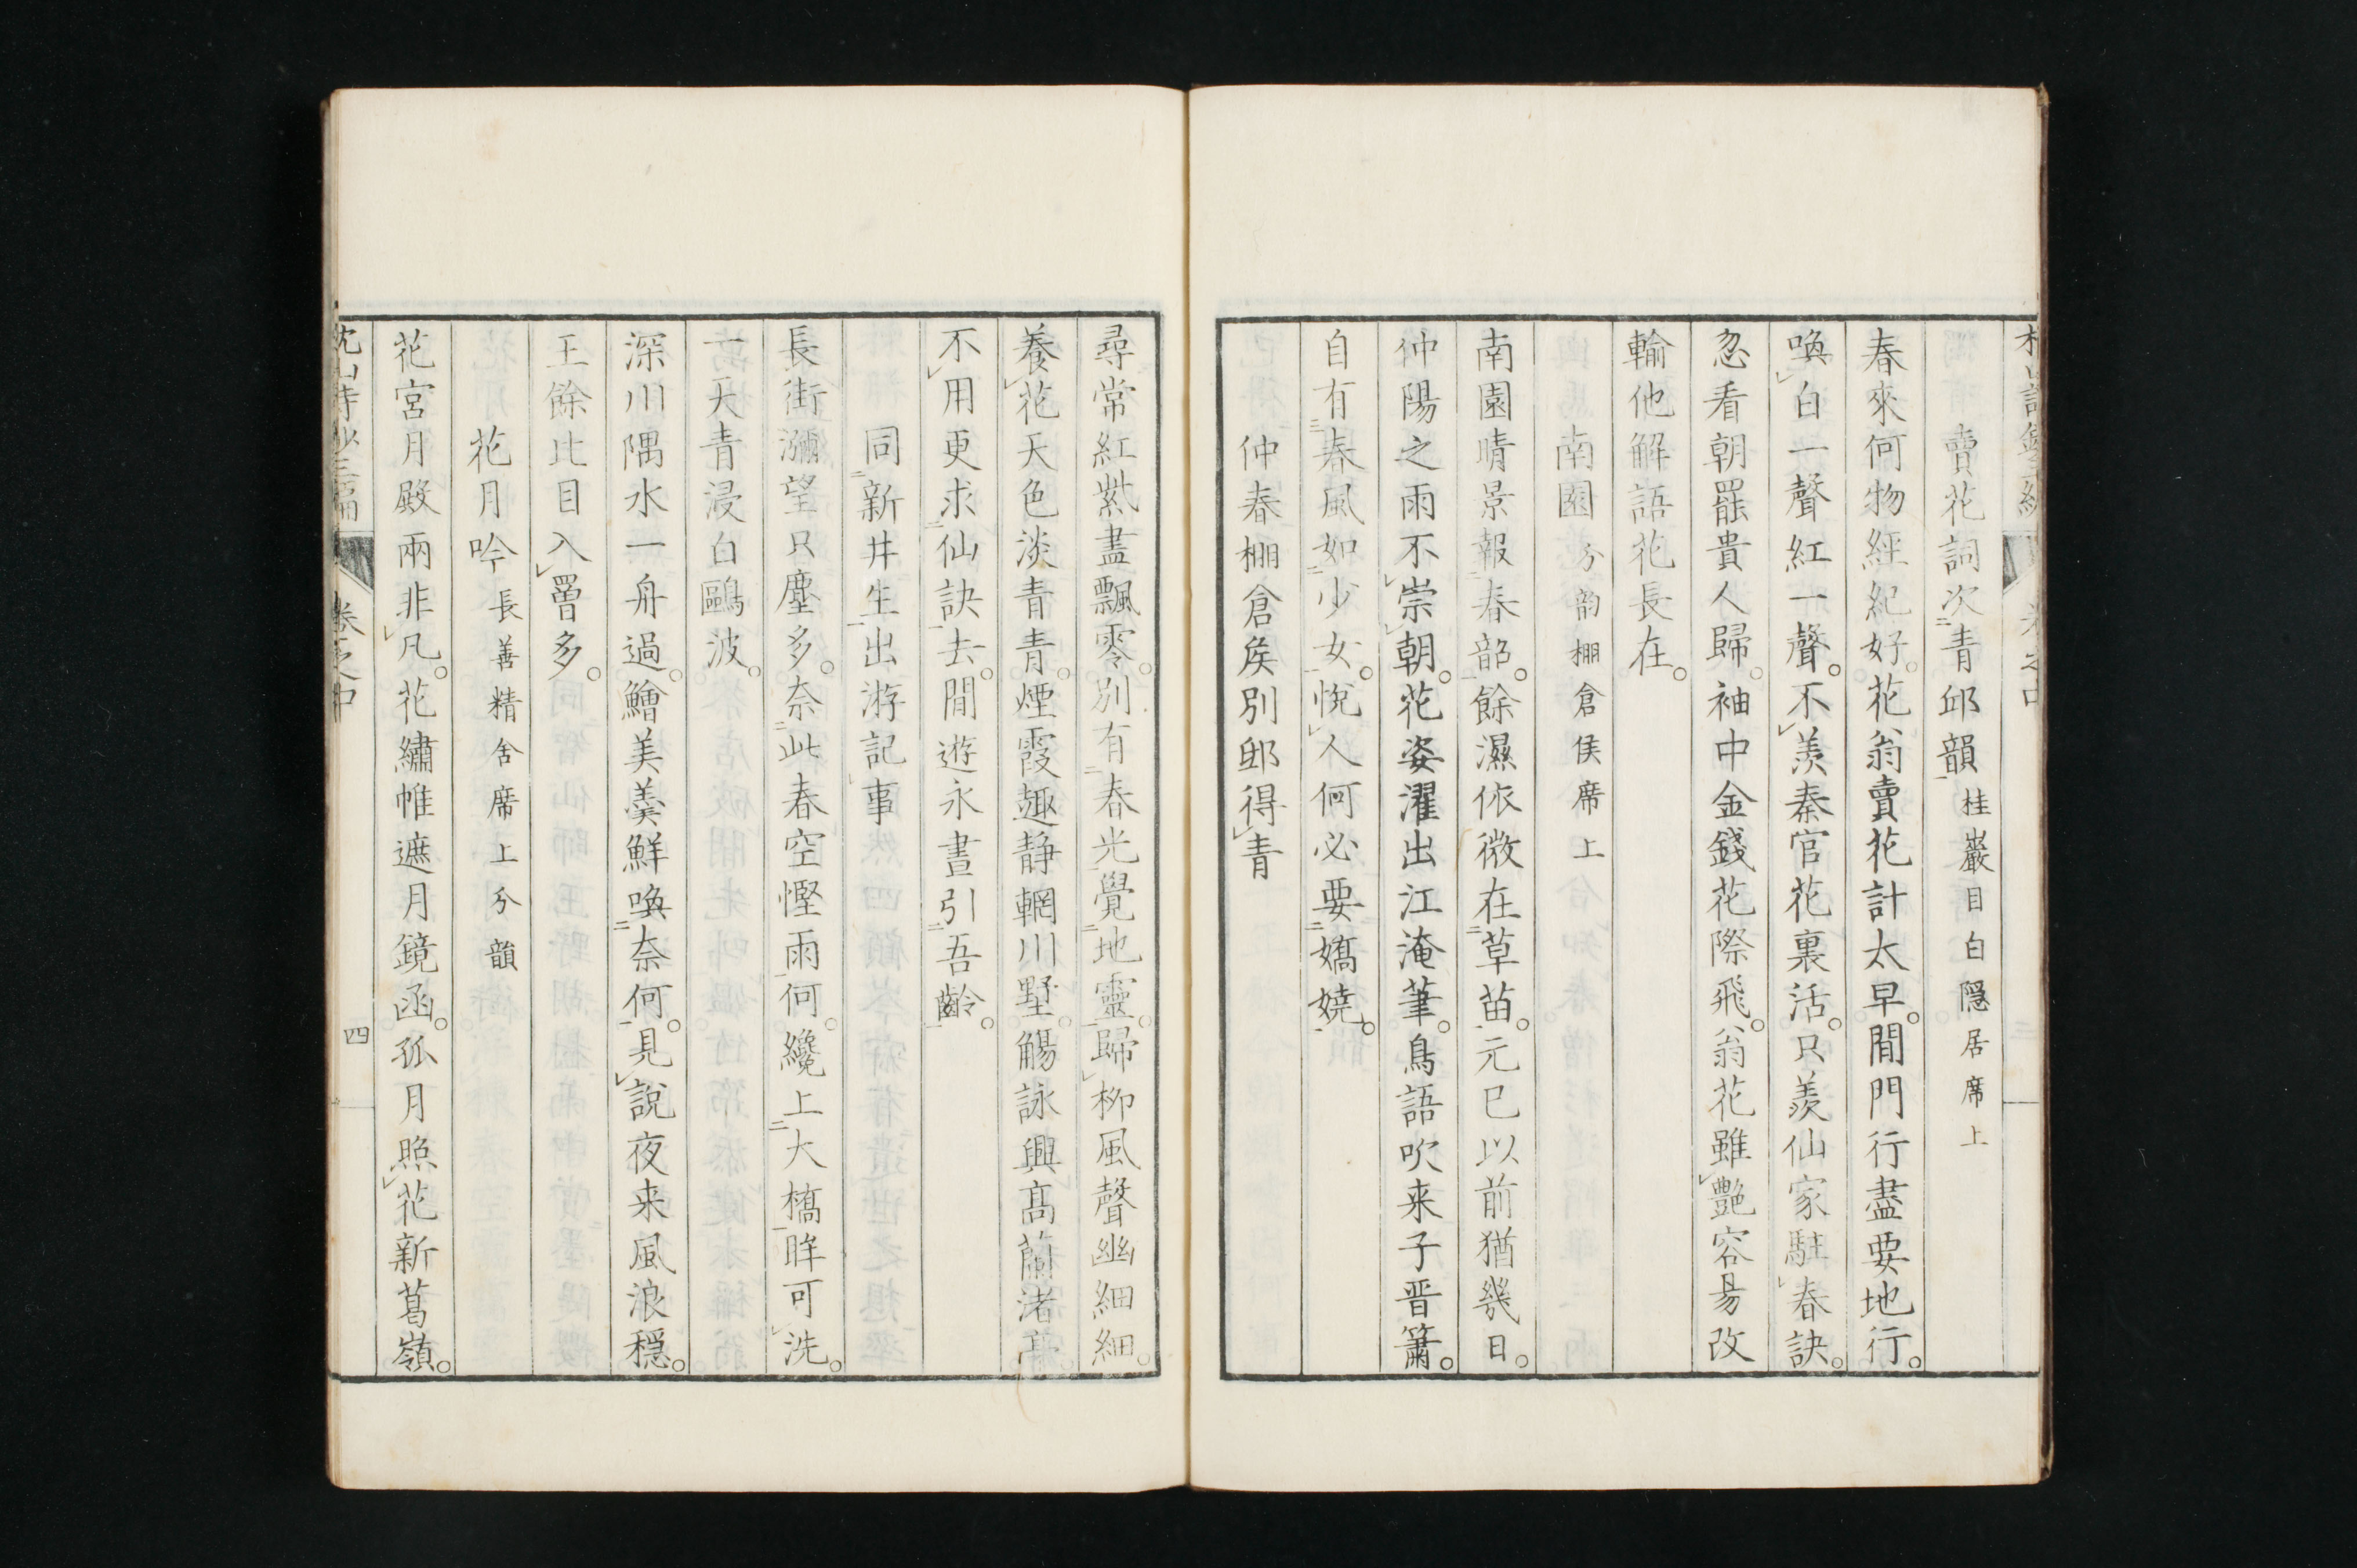 賣花詞次青邱韻 桂巖目白隱居席上
春來何物經紀好。花翁賣花計太早。閒門行盡要地行。
喚白一聲紅一聲。不羨秦官花裏活。只羨仙家駐春訣。
忽看朝罷貴人歸。袖中金錢花際飛。翁花雖艷容易改
輸他解語花長在。
南園 分韵棚倉侯席上
南園晴景報春韶。餘濕依微在草苗。元巳以前猶幾日。
仲陽之雨不崇朝。花姿濯出江淹筆。鳥語吹来子晋簫。
自有春風如少女。悅人何必要嬌嬈。
仲春棚倉矦別邸得青
尋常紅紫盡飄零。別有春光覺地靈。歸柳風聲幽細細。
養花天色淡青青。煙霞趣静輞川墅。觴詠興高蘭渚亭。
不用更求仙訣去。閒遊永晝引吾齡。
同新井生出游記事
長街瀰望只塵多。奈此春空慳雨何。纔上大橋眸可洗。
一天青浸白鷗波。
深川隅水一舟過。鱠美羹鮮喚奈何。見說夜来風浪穩。
王餘比目入罾多。
花月吟 長善精舍席上分韻
花宮月殿兩非凡。花繡帷遮月鏡函。孤月照花新葛嶺。
枕山詩鈔三編 卷之中 四